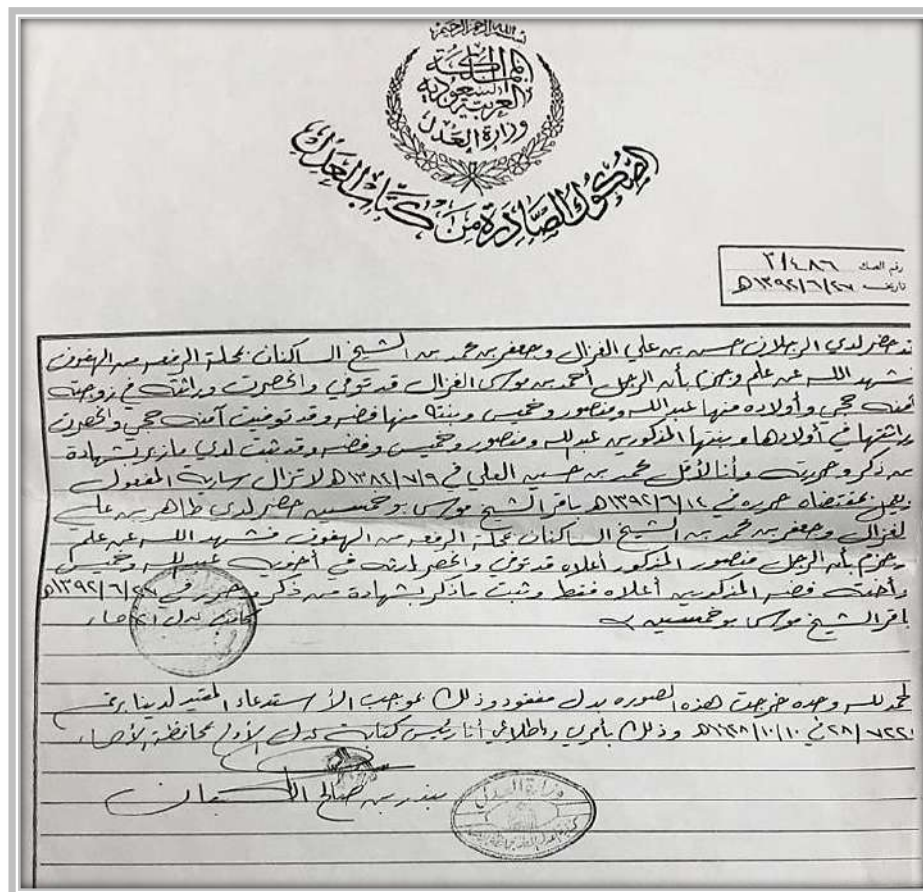 بسم الله الرحمن الرحيم
المملكة
العربية السعودية
وزارة العدل
الصكوك الصادرة من كتاب العدل
رقم الصك ٣/٤٨٦
تاريخه ١٣٩٢/٦/٢٧هـ
قد حضر لدي الرجلان حسن بن علي الغزال وجعفر بن محمد بن الشيخ الساكنان بمحلة الرفعه من الهفوف
نشهد الله عن علم وجزم بأن الرجل أحمد بن موسى الغزال قد توفي وانحصرت وراثته في زوجته
آمنه حجي وأولاده منها عبدالله ومنصور وخميس وبنته منها فضه وقد توفيت آمنه حجي وانحصرت
وراثتها في أولادها وبنتها المذكورين عبدلله ومنصور وخميس وفضه وقد ثبت لدي ما زبر بشهادة
من ذكر وحررته وأنا الأقل محمد بن حسين العلي في ١٣٨٤/٧/٩هـ لا تزال سارية المفعول
ويعمل بمقتضاه حرره في ١٣٩٢/٦/١٤هـ باقر الشيخ موسى بوخمسين حضر لدي طاهر بن علي
لغزال وجعفر بن محمد بن الشيخ الساكنان بمحلة الرفعه من الهفوف فشهد الله عن علم
وجزم بأن الرجل منصور المذكور أعلاه قد توفي وانحصر إرثه في أخويه عبدالله وخميس
وأخته فضه المذكورين أعلاه فقط وثبت ما ذكر بشهادة من ذكر وحرر في ١٣٩٢/٦/٢٧هـ
باقر الشيخ موسى بوخمسين
الحمد لله وحده خرجت هذه الصوره بدل مفقود وذلك بموجب الأستدعاء المقيد لدينا برقم
٢٨/٧٢٢٠ في ١٠/١٠/ وذلك بأمري واطلاعي أنا رئيس كتابة عدل الأولى بمحافظة الأحساء
بندر بن صالح
وزارة العدل